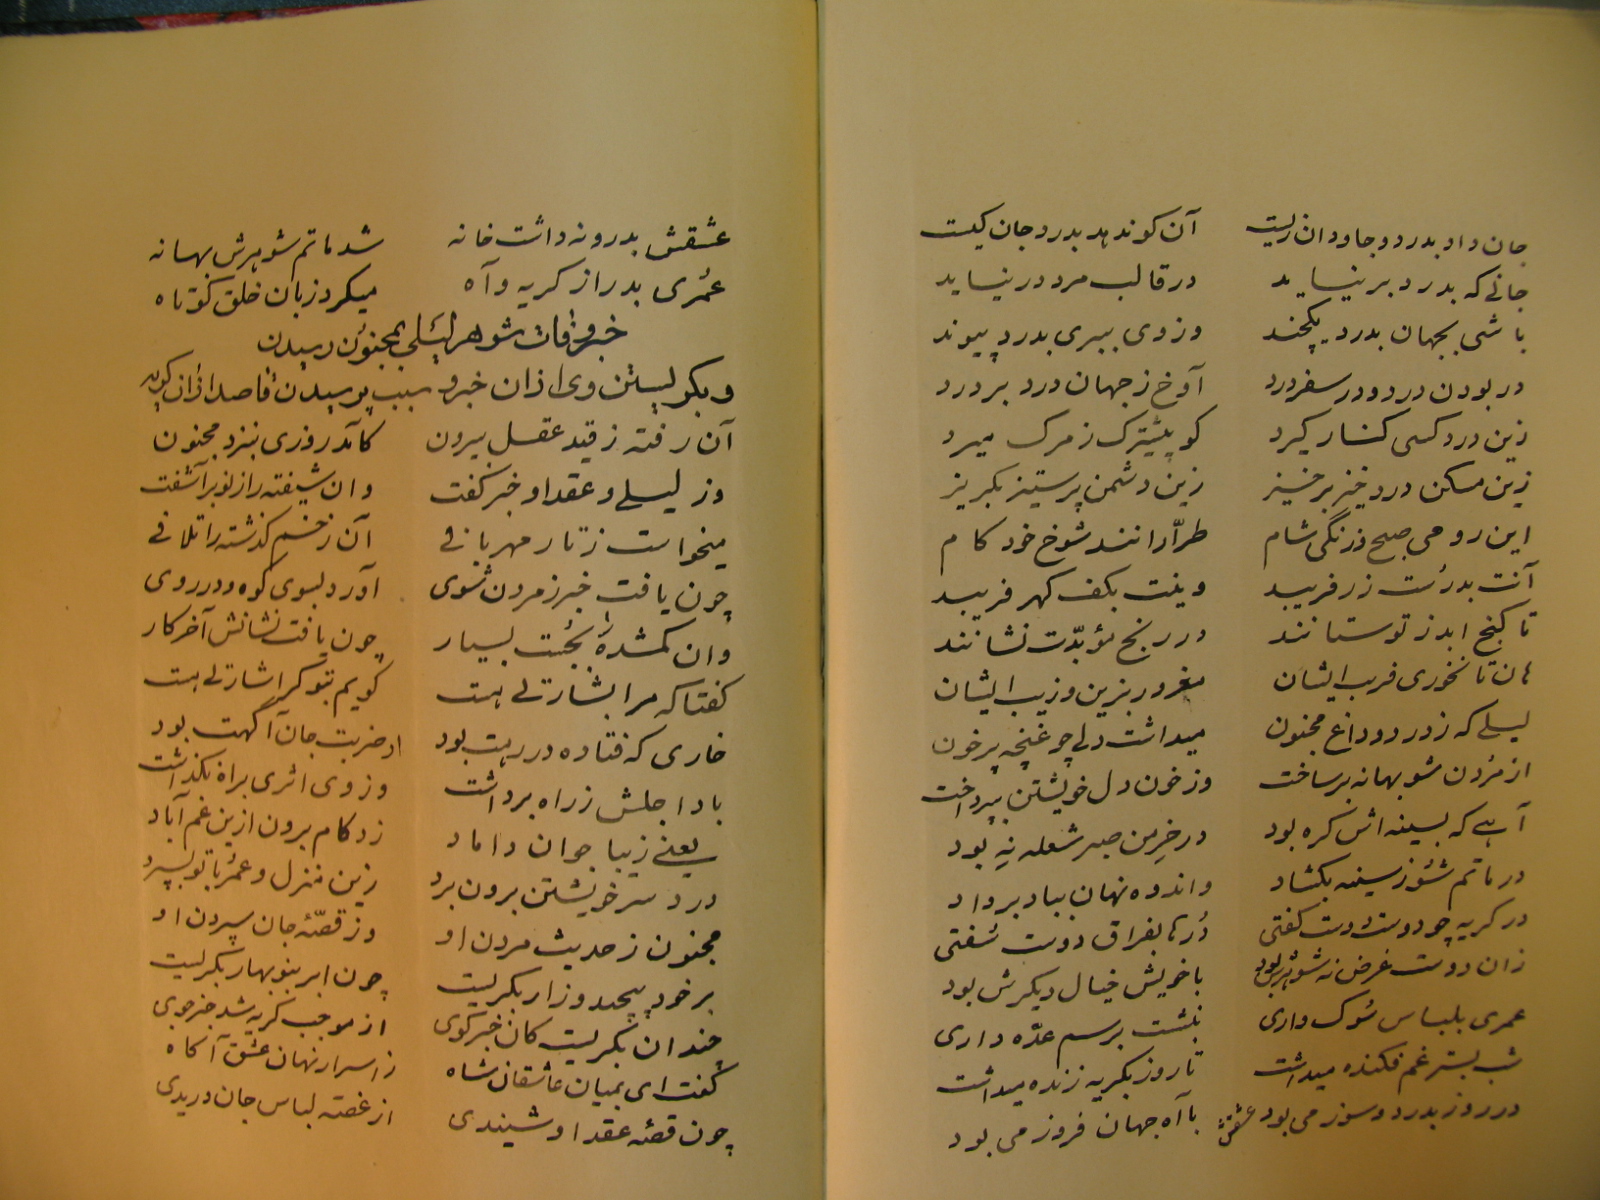 جان داد بدرد و جاودان زیست آن کو ندهد بدرد جان کیست
جانے که بدرد بر نیاید در قالب مرد در نیاید
باشی بجهان بدرد یکچند وز وی ببری بدرد پیوند
در بودن درد و در سفر درد آوخ ز جهان درد بر درد
زین درد کسی کنار گیرد کو پیشترک ز مرگ میرد
زین مسکن درد خیز برخیز زین دشمن پر ستیز بگریز
این رومی صبح و زنگی شام طرّارانند شوخ خود کام
آنت بدرست زر فریبد وینت بکف گهر فریبد
تا گنج ابد ز تو ستانند در رنج مؤبّدت نشانند
هان تا نخوری فریب ایشان مغرور بزین و زیب ایشان
لیلے که ز درد و داغ مجنون میداشت دلی چو غنچه پر خون
از مُردن شو بهانه بر ساخت وز خون دل خویشتن بپرداخت
آهے که بسینه اش گره بود در خرمن صبر شعله نه بود
در ماتم شوز سینه بگشاد و اندوه نهان بباد بر داد
در گریه چو دوست دوست گفتی دُرها بفراق دوست سُفتی
زان دوست غرض نه شوهرش بود با خویش خیال دیگرش بود
عمری بلباس سوک داری بنشست برسم عدّه داری
شب بستر غم فکنده میداشت تا روز بگریه زنده میداشت
در روز بدرد و سوز می بود با آه جهان فروز می بود
عشقش
عشقش بدرونه داشت خانه شد ماتم شوهرش بهانه
عُمری بدراز گریه و آه میکرد زبان خلق کوتاه
خبر وفات شوهر لیلی بمجنون رسیدن
و بگریستن وی ازان خبر و سبب پرسیدن قاصد ازان گریه
آن رفته ز قید عقل بیرون کآمد روزی بنزد مجنون
وز لیلے و عقد او خبر گفت وان شیفته را ز نو بر آشفت
میخواست ز تار مهربانی آن زخم گذشته را تلافی
چون یافت خبر ز مردن شوی آورد بسوی کوه و در روی
وان گمشده را بجُست بسیار چون یافت نشانش آخر کار
گفتا که مرا بشارتے هست گویم بتو گر اشارتے هست
خاری که فتاده در رهت بود از ضربت جان آگهت بود
باد اجلش ز راه برداشت وز وی اثری براه نگذاشت
یعنے زیبا جوان داماد زد گام برون ازین غم آباد
درد سر خویشتن برون برد زین منزل و عمر با تو بسپرد
مجنون ز حدیث مردن او وز قصّهٔ جان سپردن او
بر خود پیچید و زار بگریست چون ابر بنو بهار بگریست
چندان بگریست کان خبر گوی از موجب گریه شد خبر جوی
گفت ای بمیان عاشقان شاه ز اسرار نهان عشق آگاه
چون قصّه عقد او شنیدی از غصّه لباس جان دریدی